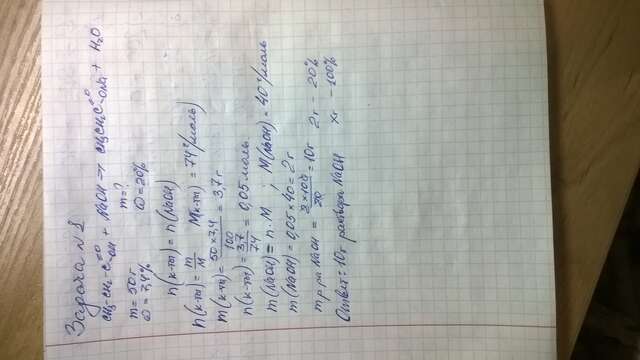 Задача №1
CH₃-CH₂-C=O-OH + NaOH → CH₃CH₂C=O-ONa + H₂O
m = 50г m = ?
ω = 7,4% ω = 20%
n(к-ты) = n(NaOH)
n(к-ты) = m/M M(к-ты) = 74 г/моль)
m(к-ты) = 50×7,4/100 = 3,7 г
n(к-ты) = 3,7/74 = 0,05 моль
m(NaOH) = n·M ; M(NaOH) = 40 г/моль
m(NaOH) = 0,05 × 40 = 2г
mр-ра NaOH = 2×100/20 = 10г 2г - 20%
xг - 100%
Ответ: 10г раствора NaOH